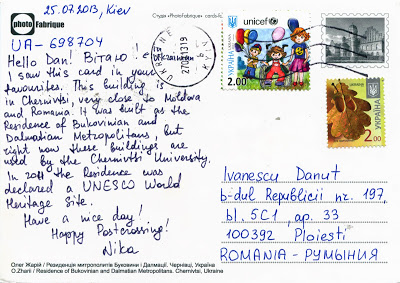 25.07.2013, Kiev
photo Fabrique
Студія «PhotoFabrique» cards-fa
UA-698704
Hello Dan! Вітаю
I saw this card in your
favourites. This building is
in Chernivtsi, very close to Moldova
and Romania. It was built as the
Residence of Bukovinian and
Dalmatian Metropolitans, but
right now these buildings are
used by the Chernivtsi University.
In 2011 the Residence was
declared a UNESCO World
Heritage Site.
Have a nice day!
Happy Postcrossing!
Nika
Олег Жарій / Резиденція митрополитів Буковини і Далмації, Чернівці, Україна
O.Zharii / Residence of Bukovinian and Dalmatian Metropolitans. Chernivtsi, Ukraine
in Ukrainian
UKRAINE
unicef
УКРАЇНА
2.00
УКРАЇНА
2.00
Ivanescu Danut
b-dul Republicii nr. 197,
bl. 5C1, ap. 33
100392 Ploiesti
ROMANIA - РУМЫНИЯ